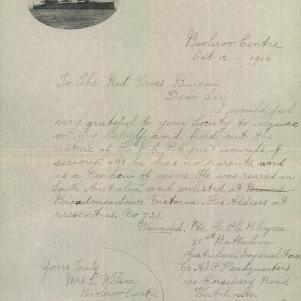 Booleroo Centre
Oct 12 - 1916
To The Red Cross Bureau
Dear Sir
I would feel
very grateful to your Society to inquire
on my behalf and find out the
nature of Pte P.C. Rhyne's wounds if
serious. As he has no parents, and
is a Nephew of mine. He was reared in
South Australia, and enlisted at
Broadmeadows Victoria. His Address at
present is No 731.
Wounded, Pte P.C. Rhyne
21st Battalion
Australian Imperial Force
C/o A.I.F. Headquarters
130 Horseferry Road
Westminster
Yours Truly
Mrs. E Wilson
Booleroo Centre